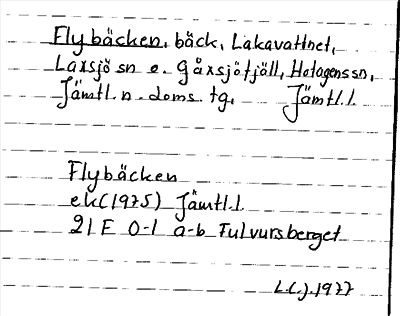 Flybäcken, bäck, Lakavattnet,
Laxsjö sn o. Gåxsjöfjäll, Hotagens sn,
Jämtl. n. doms. tg. Jämtl.l.
Flybäcken
ek (1975) Jämtl.l.
21 F 0-1 a-b Fulvursberget
L.C.J. 1977